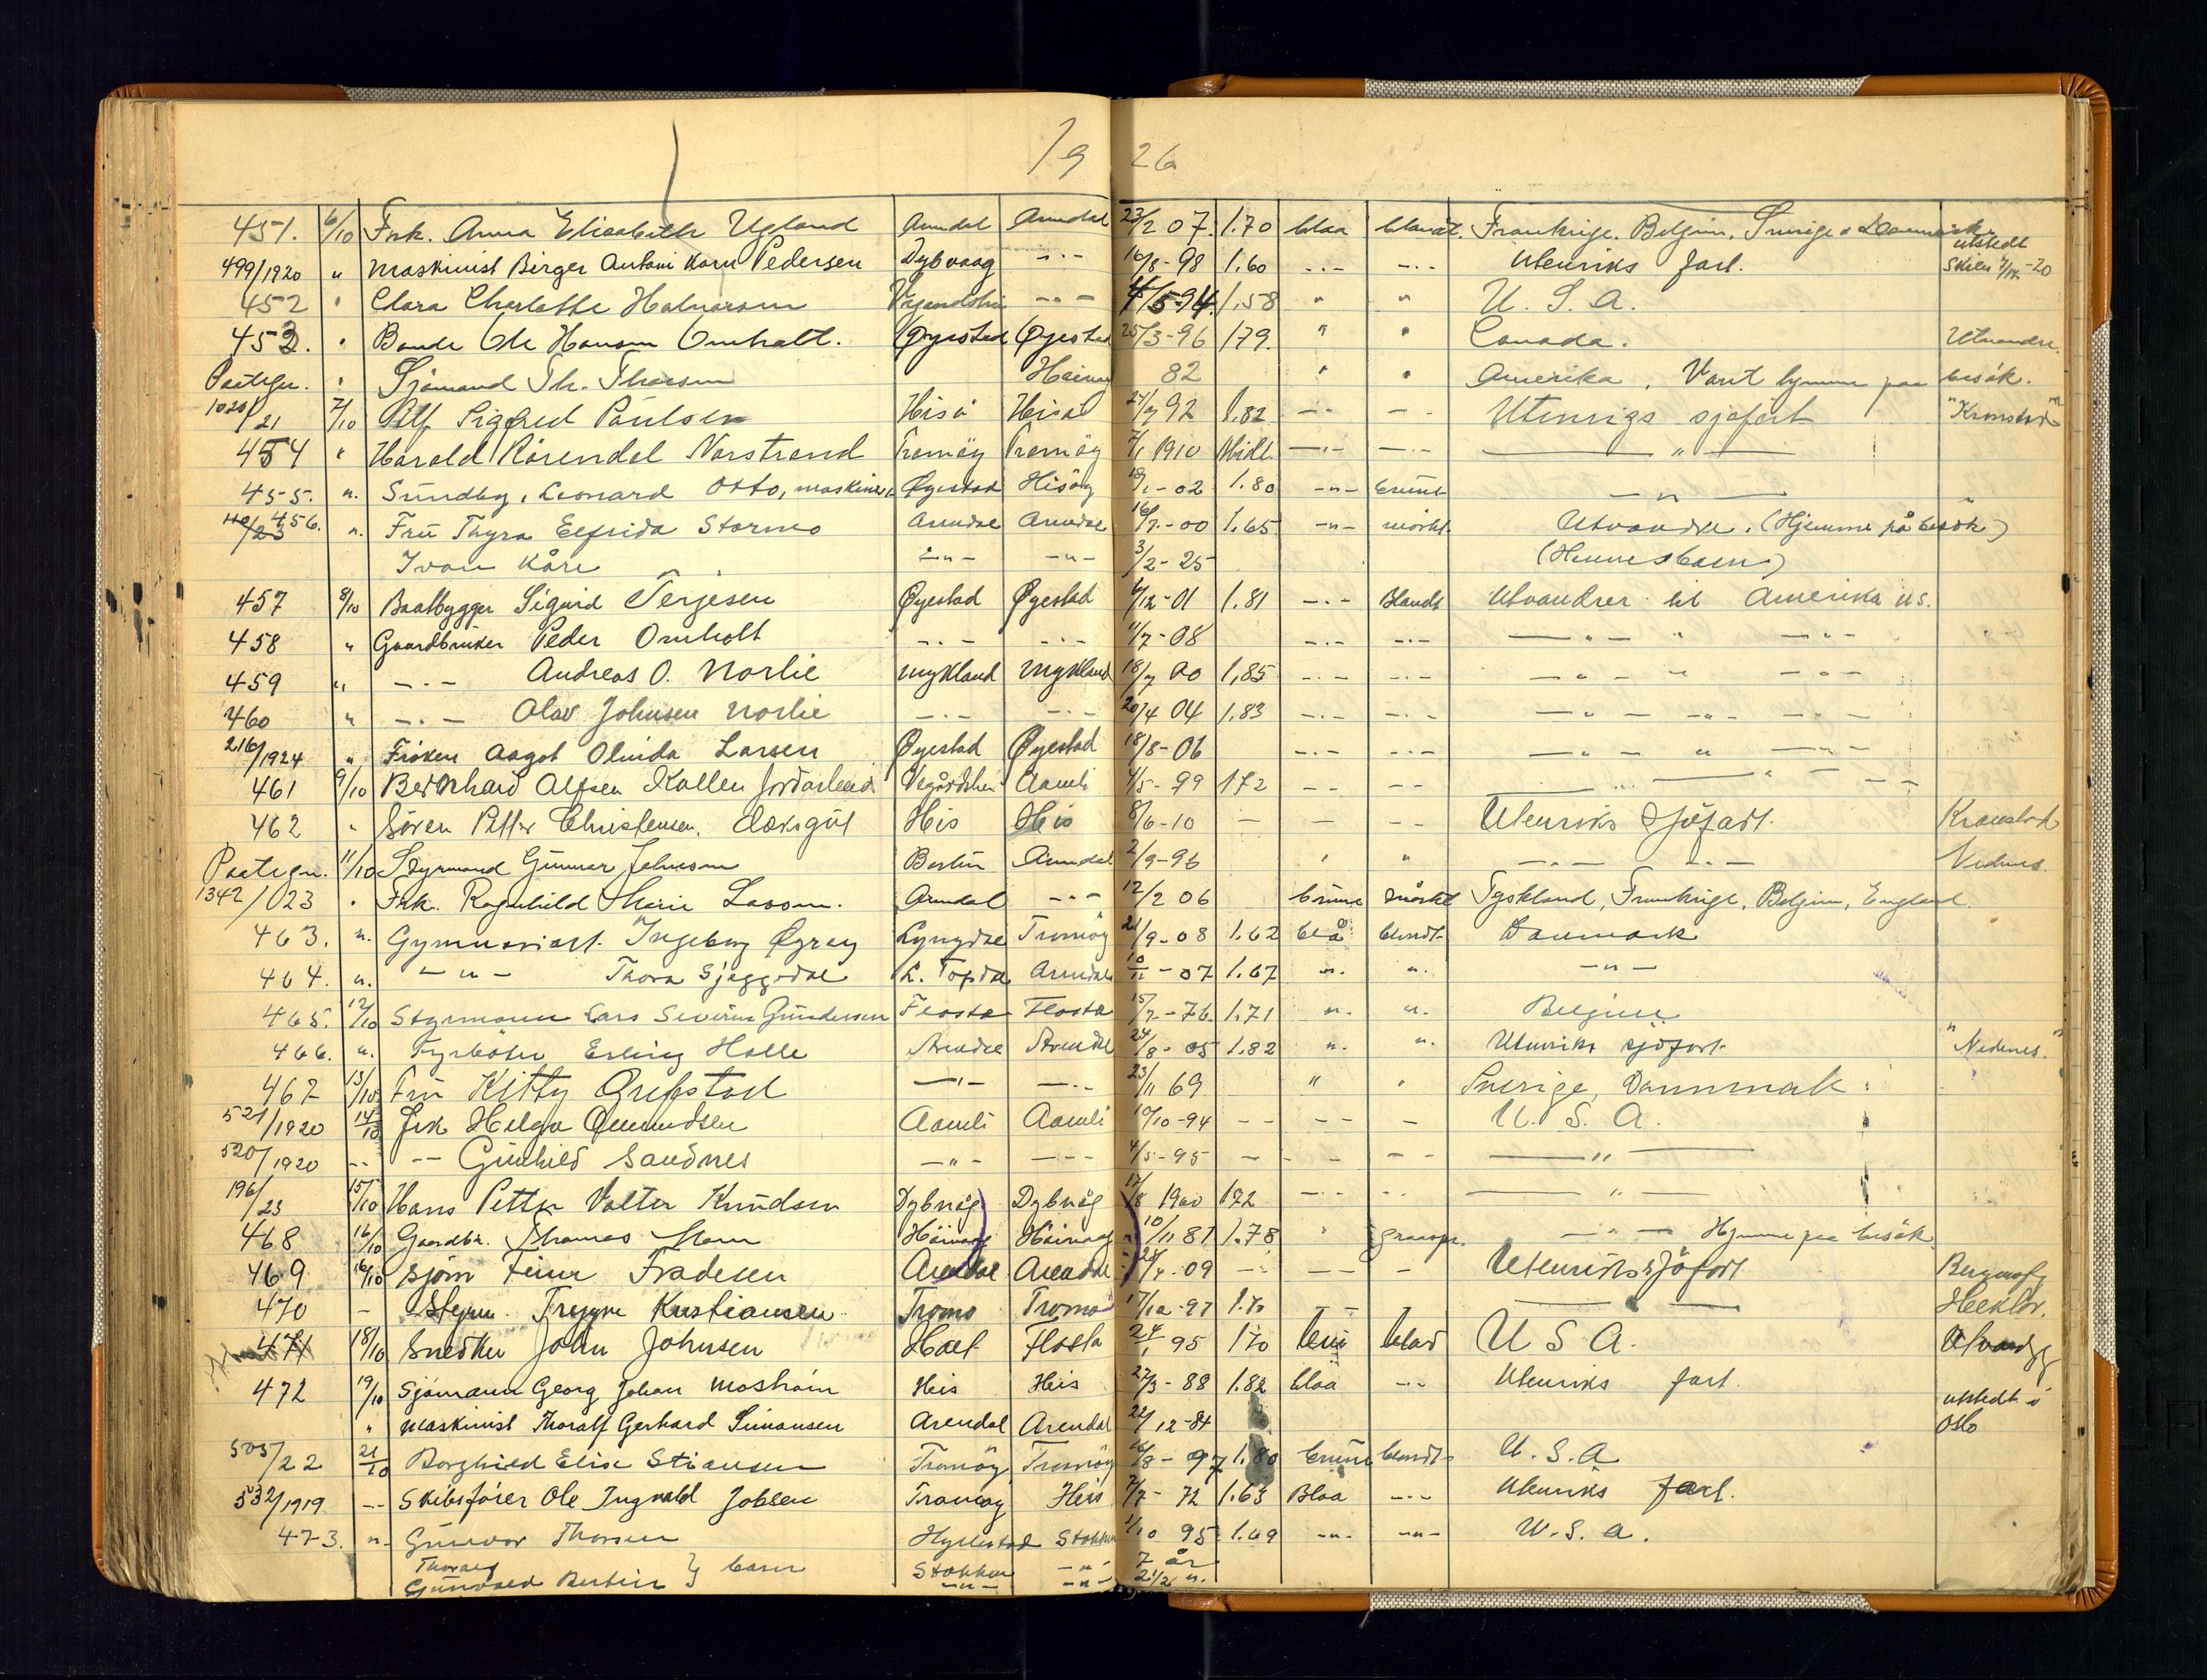 19 26
451. 6/10 Frk. Anna Elisabeth Ugland Arendal Arendal 23/2 07. 1.70 blaa Frankrige. Belgien, Sverige & Danmark
499/1920 " Maskinist Birger Antoni Pedersen Dybvaag -"- 16/8-98 1.60 -"- -"- Utenriks fart. utstedt Skien -20
452 " Clara Charlotte Halvorsen -"- 4/5-94. 1.58 " " U. S. A.
453. " Bonde Ole Hansen Omholt. Øyestad Øyestad 25/3-96 179. " " Canada. Utvandre.
" Sjömand Th. Thorsen 82 " " Amerika. Vært hjemme paa besök.
1020/21 7/10 Alf Sigfred Paulsen Hisö Hisö 92 1.82 -"- -"- Utenrigs sjøfart "Kronstad"
454 " Harald Rörendal Narstrand Tromöy Tromöy 7/1 1910 Midl -"- -"- -"-
455. ". Sundby, Leonard Otto, maskinist Øyestad Hisöy -02 1.80 -"- brunt -"-
456. ". Frü Thyra Elfrida Stormo Arendal Arendal 16/7-00 1.65 -"- mörkt. Utvandre. (Hjemme på besök)
Ivan Kåre -"- -"- 3/2-25 (Hennes barn)
457 8/10 Baatbygger Sigurd Terjesen Øyestad Øyestad 6/12-01 1.81 -"- Blondt Utvandrer til Amerika U.S.
458 " Gaardbruker Peder Omholt -"- -"- 11/7-08 -"- -"- -"- " -"-
459 " -"- Andreas O. Norlie Mykland Mykland 18/7 00 1,85 -"- -"- -"- " -"-
460 " -"- Olav Johnsen Norlie -"- -"- 20/4 04 1.83 -"- -"- -"- -"- -"-
216/1924 " Fröken Aagot Olvida Larsen Øyestad Øyestad 18/8-06 -"- -"- -"- " -"-
461 9/10 Bernhard Alfsen Kallen Jordarbeid Vegårdshei Aamli 4/5-99 172 -- -- -"-
462 " Sören Petter Christensen, His His 8/6-10 - - -- Utenriks Sjöfart. Kronstad
11/10 Styrmand Gunnar Johnson Berlin Arendal 2/9-96 " " -"- -"- Nedenes.
1342/023 " Frk. Ragnhild Marie Larson. Arendal -"- 12/2 06 brune mörkt Tyskland, Frankrige, Belgien, England.
463. ". Gymnasiast. Ingeborg Øyrey Lyngdal Tromöy 21/9-08 1.62 blå blondt Danmark
464. ". -"- Thora Sjeggedal Arendal -07 1.67 ". ". -"-
465. 12/10 Styrmann Lars Severin Gundersen Flosta Flosta 15/7-76 1.71 ". ". Belgien
466. ". Fyrböter Erling Holle Arendal Arendal 24/8-05 1.82 ". ". Utenriks sjöfart "Nedenes."
467 13/10 Fru Kitty Grefstad -"- -"- 23/11 69 " " Sverige, Danmark.
521/1920 14/10 Frk Helga Omundsen Aamli Aamli 10/10-94 -- -- - U. S. A.
520/1920 -- -- Gunhild Sandnes -"- --- 4/5-95 - - -- -"-
196/23 15/10 Hans Petter Valter Knudsen Dybvåg Dybvåg 17/8 1900 172 -"- -- -"-
468 16/10 Gaardbr. Thomas 10/11 81 1.78 " -"- Hjemme paa besök.
469 16/10 Sjöm Einar Fradesen Arendal Arendal -09 -- -- - Utenriks Sjöfart
470 - Styrm. Trygve Kristiansen Tromö Tromö 17/12-97 -- -"- Hektor.
471 18/10 Snedker John Johnsen Flosta 24/1 95 170 U S A.
472 19/10 Sjömann Georg Johan His His 27/3-88 1.82 blaa -"- Utenriks fart
" Maskinist Thoralf Gerhard Simonsen Arendal Arendal 22/12-84 utstedt i Oslo
505/22 21/10 Borghild Elise Stiansen Tromöy Tromöy 16/8-97 1.80 brune blondt U. S. A
532/1919 -- Skibsförer Ole Ingvald Jobsen Tromöy His 7/7-72 1.63 Blaa -"- Utenriks fart.
473. ". Gunvor Thorsen Hyllestad Stokken 1/10 95. 1.69 -"- -"- U. S. A.
Thoralf } barn Stokken -"- 7 år
Gunvald Bertin -"- -"- 2 1/2 ".